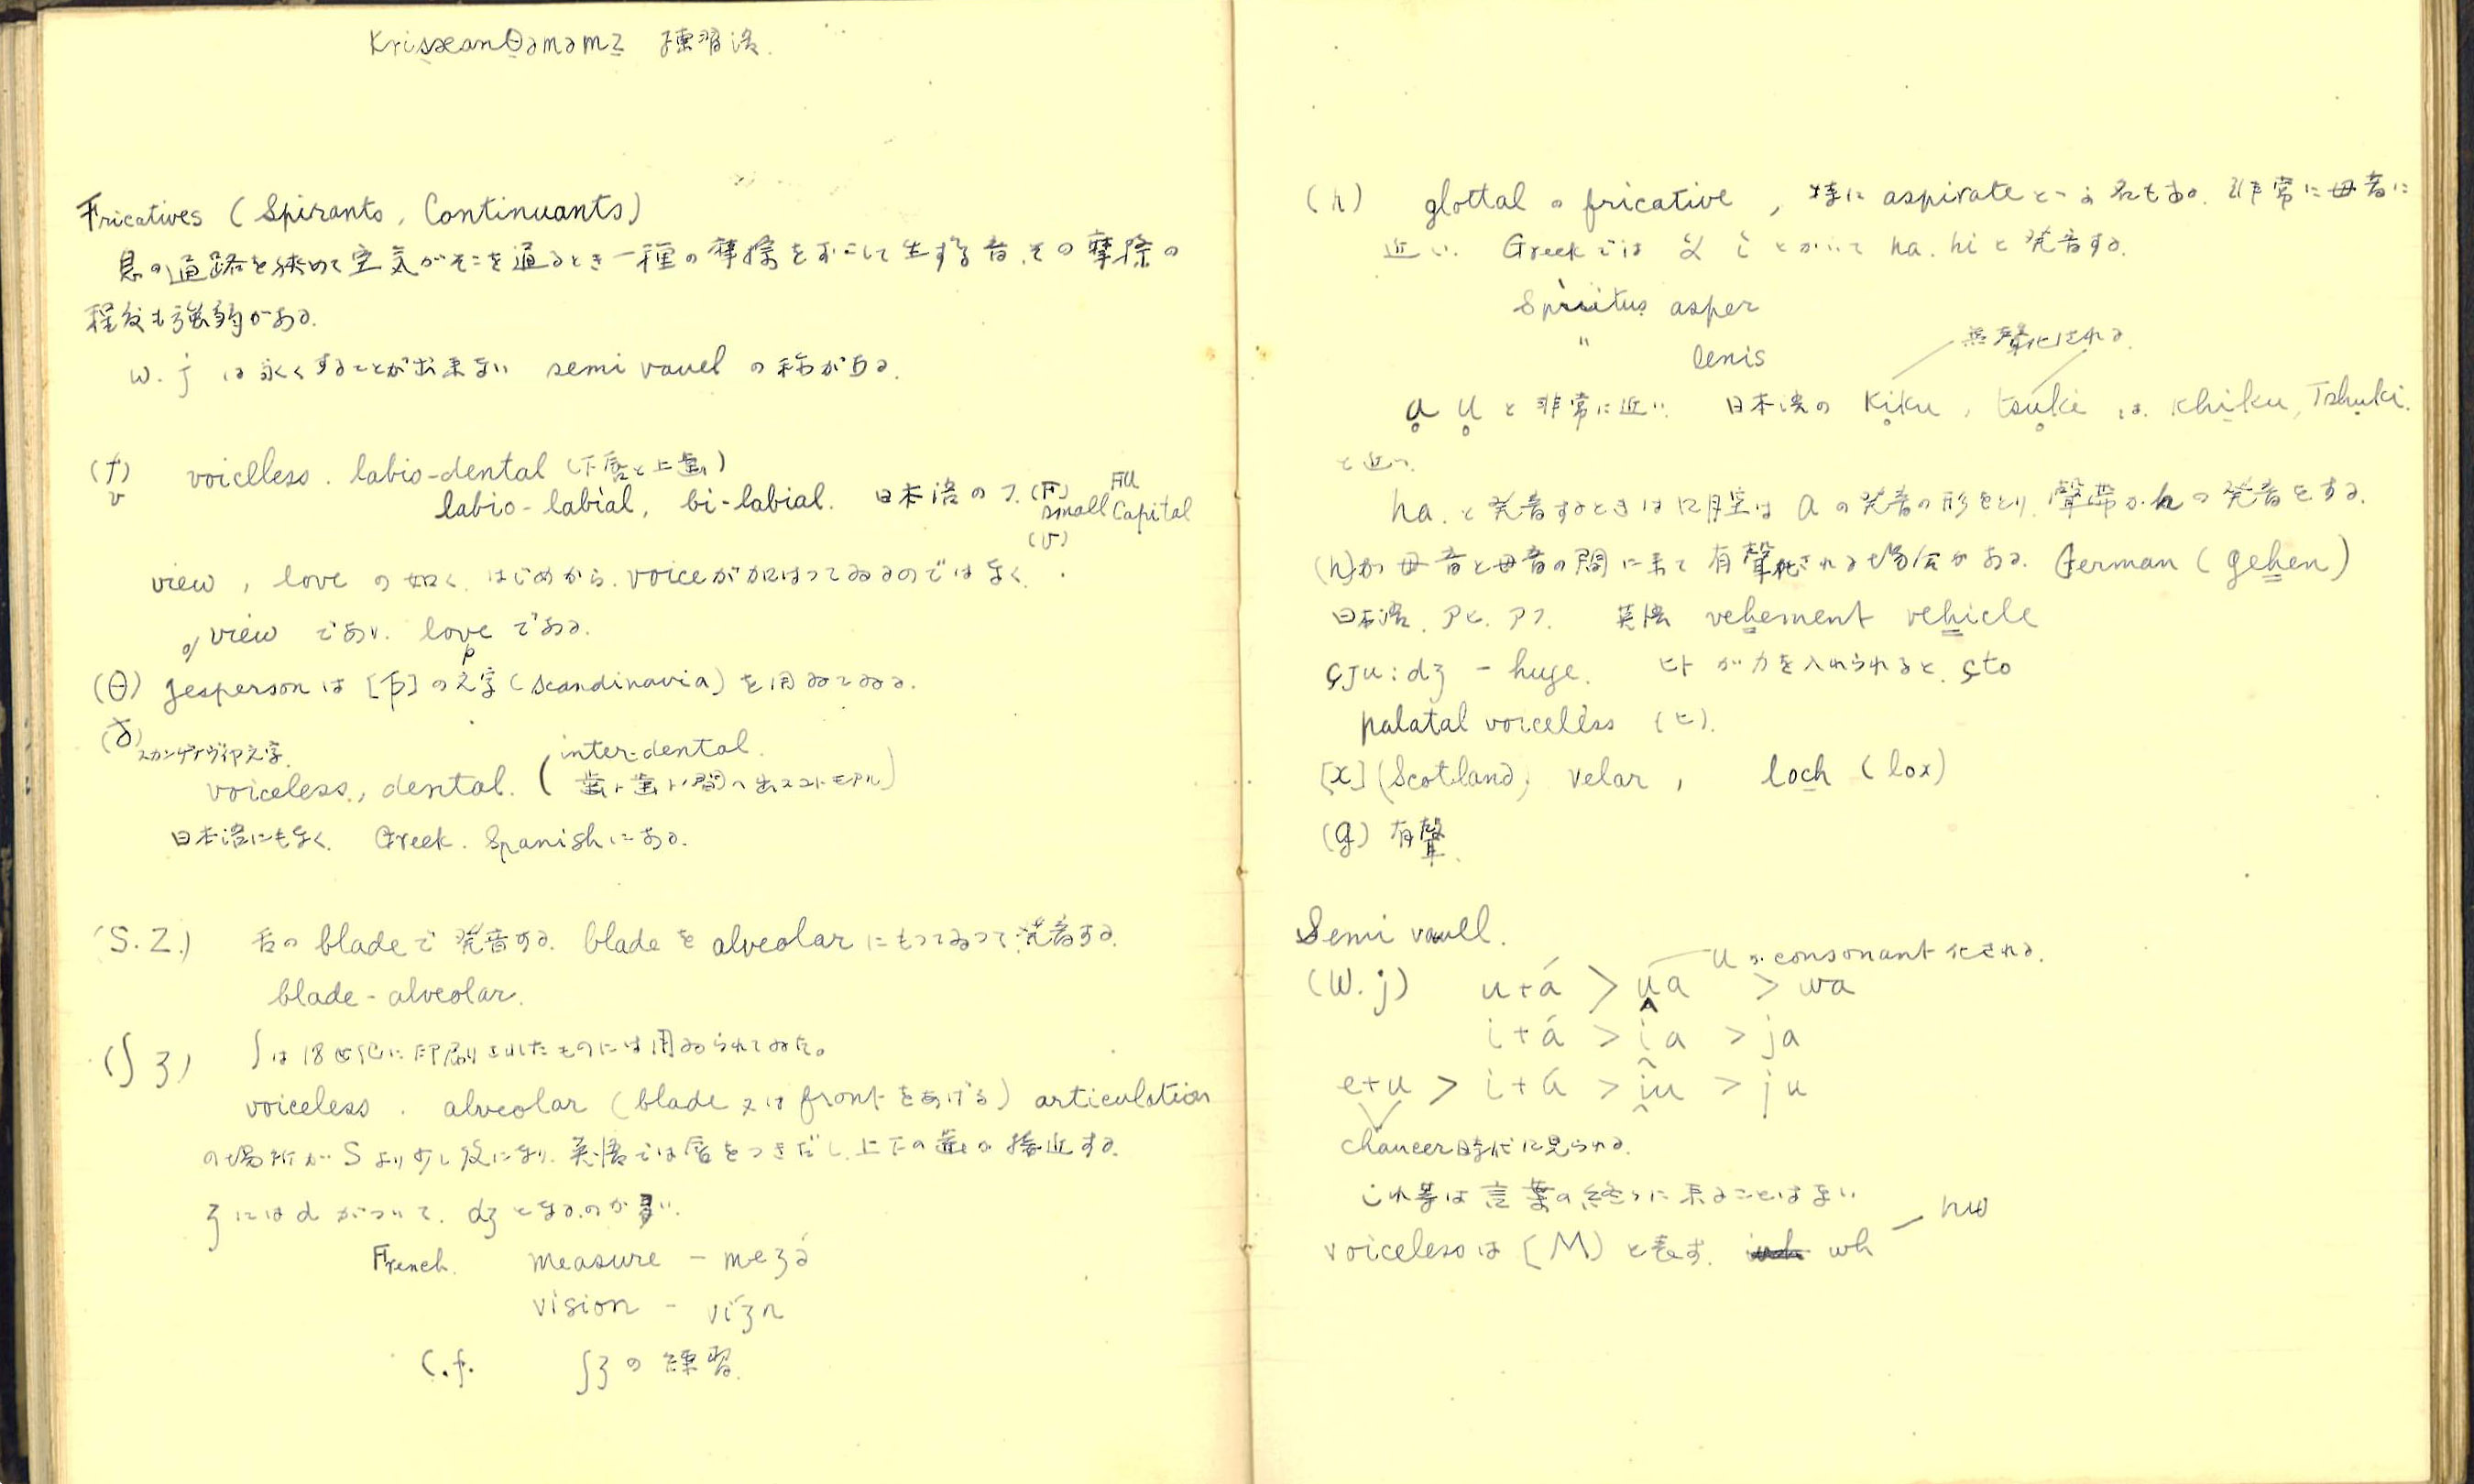 KrisæanΘəməmz 練習法.
Fricatives (Spirants, Continuants)
息の通路を狭めて空気がそこを通るとき一種の摩擦をおこして生ずる音. その摩擦の
程度も強弱がある.
w. j は永くすることが出来ない semi vowel の称がある.
(f) voiceless. labio-dental (下唇と上歯)
v
labio-labial, bi-labial. 日本語のフ. (F) FU
small Capital
(v)
view, love の如く はじめから voice が加はってゐるのではなく.
view であり. love である.
(θ) Jesperson は [þ] の文字 (Scandinavia) を用ゐてゐる.
(ð) スカンヂナヴィヤ文字.
inter-dental.
voiceless, dental. (歯ト歯トノ間ヘ出スコトモアル)
日本語にもなく. Greek. Spanish にある.
(S. Z.) 舌の blade で発音する. blade を alveolar にもってゐって発音する.
blade-alveolar.
(ʃ ʒ) ʃ は 18 世紀に印刷されたものには用ゐられてゐた。
voiceless. alveolar (blade 又は front をあげる) articulation
の場所が S より少し後になり. 英語では唇をつきだし. 上下の歯が接近する.
ʒ には d がついて. dʒ となるのが多い.
French. measure – meʒə
vision – viʒn
C.f. ʃʒ の練習.
(h) glottal の fricative, 特に aspirate といふ名もある. 非常に母音に
近い. Greek では ἁ ἱ とかいて ha. hi と発音する.
Spiritus asper
〃 lenis
無聲化される.
ḁ u̥ と非常に近い. 日本語の Ki̥ku, tsu̥ki は. Khiku, Tshuki.
と近い.
ha. と発音するときは口腔は a の発音の形をとり. 聲帯が h の発音をする.
(h) が母音と母音の間に来て有聲化される場合がある. German (gehen)
日本語. アヒ. アフ. 英語 vehement vehicle
çju:dʒ – huge. ヒト が力を入れられると. çto
palatal voiceless (ヒ).
[x] (Scotland) velar, loch (lox)
(g) 有聲.
Semi vowel.
u が consonant 化される.
(W. j) u+á > u̯a > wa
i+á > i̯a > ja
e+u > i+ú > i̯u > ju
Chaucer 時代に見られる.
これ等は言葉の終りに来ることはない
voiceless は [ʍ] と表す. wh — hw